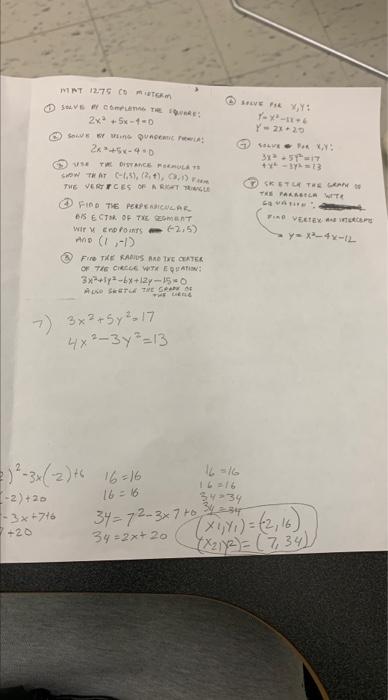 MAT 1275 CO MIDTERM
① SOLVE BY COMPLETING THE SQUARE:
2x² + 5x - 4 = 0
② SOLVE BY USING QUADRATIC FORMULA:
2x² + 5x - 4 = 0
③ USE THE DISTANCE FORMULA TO
SHOW THAT (-1,5), (2,4), FORM
THE VERTICES OF A RIGHT TRIANGLE
④ FIND THE PERPENDICULAR
BISECTOR OF THE SEGMENT
WITH ENDPOINTS (-2,5)
AND (1,-1)
⑤ FIND THE RADIUS AND THE CENTER
OF THE CIRCLE WITH EQUATION:
3x²+3y²-6x+12y-15=0
ALSO SKETCH THE GRAPH OF
THE CIRCLE
⑥ SOLVE FOR X,Y:
Y = X² - 3X + 6
Y = 2X + 20
⑦ SOLVE FOR X,Y:
3x² + 5y² = 17
4x² - 3y² = 13
⑧ SKETCH THE GRAPH OF
THE PARABOLA WITH
EQUATION:
FIND VERTEX AND INTERCEPTS
y = x² - 4x - 12
7) 3x² + 5y² = 17
4x² - 3y² = 13
)² - 3x(-2)+6 16 = 16 16 = 16
(-2)+20 16 = 16 16 = 16
34 = 34
- 3x+7+6 34 = 7² - 3x7+6 34 = 34
+20 34 = 2x+20
(x1,y1) = (-2,16)
(x2,y2) = (7,34)